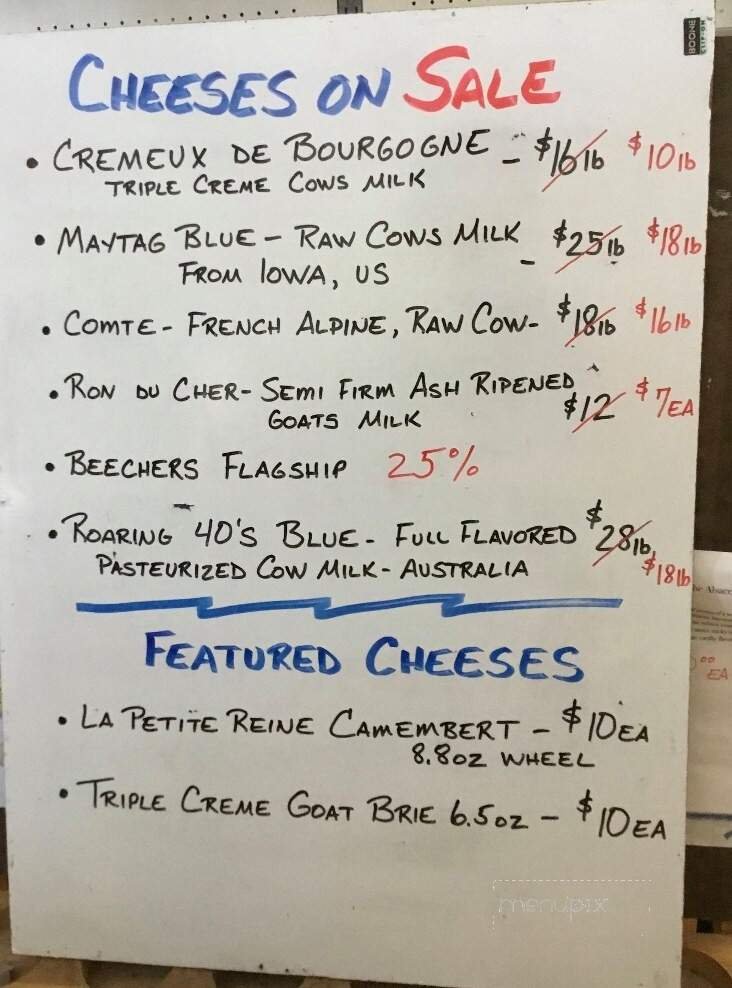 CHEESES ON SALE
• CREMEUX DE BOURGOGNE - $16 lb $10 lb
TRIPLE CREME COWS MILK
• MAYTAG BLUE - RAW COWS MILK - $25 lb $18 lb
FROM IOWA, US
• COMTE - FRENCH ALPINE, RAW COW - $18 lb $16 lb
• RON DU CHER - SEMI FIRM ASH RIPENED
GOATS MILK $12 $7 EA
• BEECHERS FLAGSHIP 25%
• ROARING 40'S BLUE - FULL FLAVORED $28 lb
PASTEURIZED COW MILK - AUSTRALIA $18 lb
FEATURED CHEESES
• LA PETITE REINE CAMEMBERT - $10 EA
8.8 OZ WHEEL
• TRIPLE CREME GOAT BRIE 6.5 OZ - $10 EA
menupix
BOONE
EA